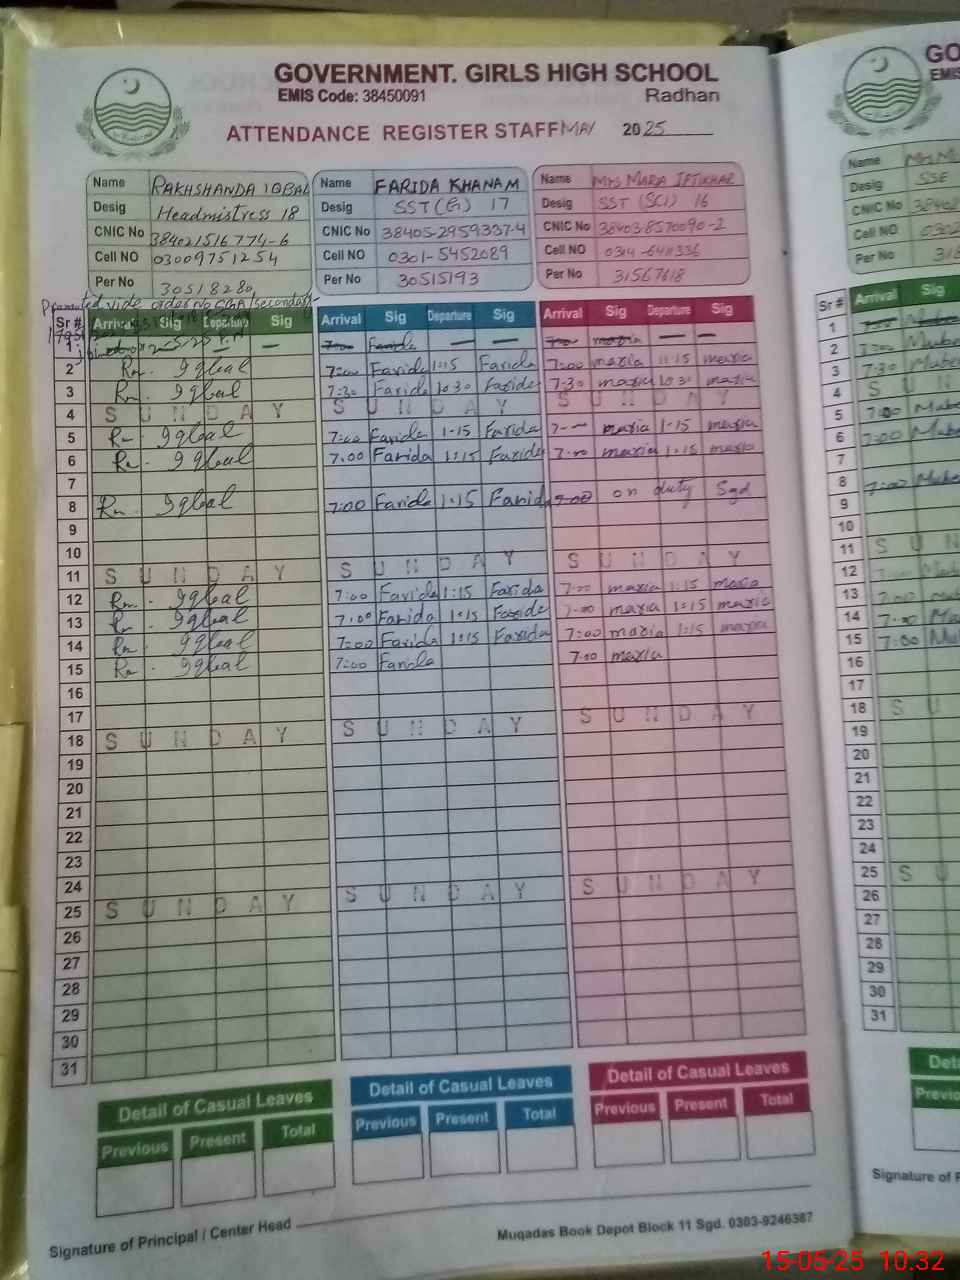 GOVERNMENT. GIRLS HIGH SCHOOL
EMIS Code: 38450091 Radhan
ATTENDANCE REGISTER STAFF MAY 2025
Name RAKHSHANDA IQBAL
Desig Headmistress 18
CNIC No 384021516774-6
Cell NO 03009751254
Per No 30518280
Name FARIDA KHANAM
Desig SST (G) 17
CNIC No 38405-2959337-4
Cell NO 0301-5452089
Per No 30515193
Name Mrs MARIA IFTIKHAR
Desig SST (SCI) 16
CNIC No 38403-8570090-2
Cell NO 0314-6411336
Per No 31567618
Promoted vide order no
Sr # Arrival Sig Departure Sig Arrival Sig Departure Sig Arrival Sig Departure Sig
1 — — 7:00 Farida — — 7:00 maria — —
2 Rn. Iqbal 7:00 Farida 1:15 Farida 7:00 maria 1:15 maria
3 Rn. Iqbal 7:30 Farida 10:30 Farida 7:30 maria 10:30 maria
4 SUNDAY SUNDAY SUNDAY
5 Rn. Iqbal 7:00 Farida 1-15 Farida 7-- maria 1-15 maria
6 Rn. Iqbal 7.00 Farida 1:15 Farida 7-00 maria 1:15 maria
7
8 Rn. Iqbal 7:00 Farida 1:15 Farida 7:00 on duty Sgd
9
10
11 SUNDAY SUNDAY SUNDAY
12 Rn. Iqbal 7:00 Farida 1:15 Farida 7-00 maria 1:15 maria
13 Rn. Iqbal 7:00 Farida 1:15 Farida 7-00 maria 1:15 maria
14 Rn. Iqbal 7:00 Farida 1:15 Farida 7:00 maria 1:15 maria
15 Rn. Iqbal 7:00 Farida 7.00 maria
16
17
18 SUNDAY SUNDAY SUNDAY
19
20
21
22
23
24
25 SUNDAY SUNDAY SUNDAY
26
27
28
29
30
31
Detail of Casual Leaves Detail of Casual Leaves Detail of Casual Leaves
Previous Present Total Previous Present Total Previous Present Total
Signature of Principal / Center Head
Muqadas Book Depot Block 11 Sgd. 0303-9246367
GO
EMIS
Name
Desig SSE
CNIC No
Cell No
Per No
Sr # Arrival Sig
1
2
3 7:30
4 S U N
5 7:00
6 7:00
7
8 7:00
9
10
11 S U N
12
13
14
15 7:00
16
17
18 S U
19
20
21
22
23
24
25 S U
26
27
28
29
30
31
Signature of
15-05-25 10:32